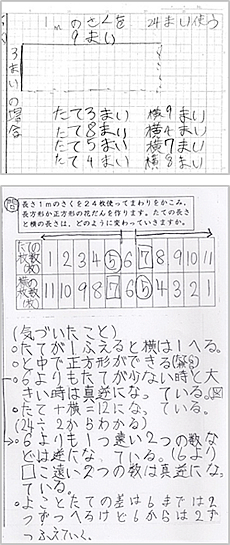 1mのさくを24まい使う
9まい
3まいの場合
たて3まい 横9まい
たて8まい 横4まい
たて5まい 横7まい
たて4まい 横8まい
長さ1mのさくを24枚使ってまわりをかこみ、
長方形か正方形の花だんを作ります。たての長さ
と横の長さは、どのように変わっていきますか。
たての枚数(枚) 1 2 3 4 ⑤ 6 7 8 9 10 11
横の枚数(枚) 11 10 9 8 7 6 ⑤ 4 3 2 1
(気づいたこと)
○たてが1ふえると横は1へる。
○と中で正方形ができる
○6よりもたてが少ない時と大
きい時は真逆になっている。
○たて+横=12になっている。
(24÷2からわかる)
○6よりも1つ遠い2つの数な
どは逆になっている。(6より
□こ遠い2つの数は真逆になっ
ている。
○よことたての差は6までは2
つずつへるけど6からは2ず
つふえていく。